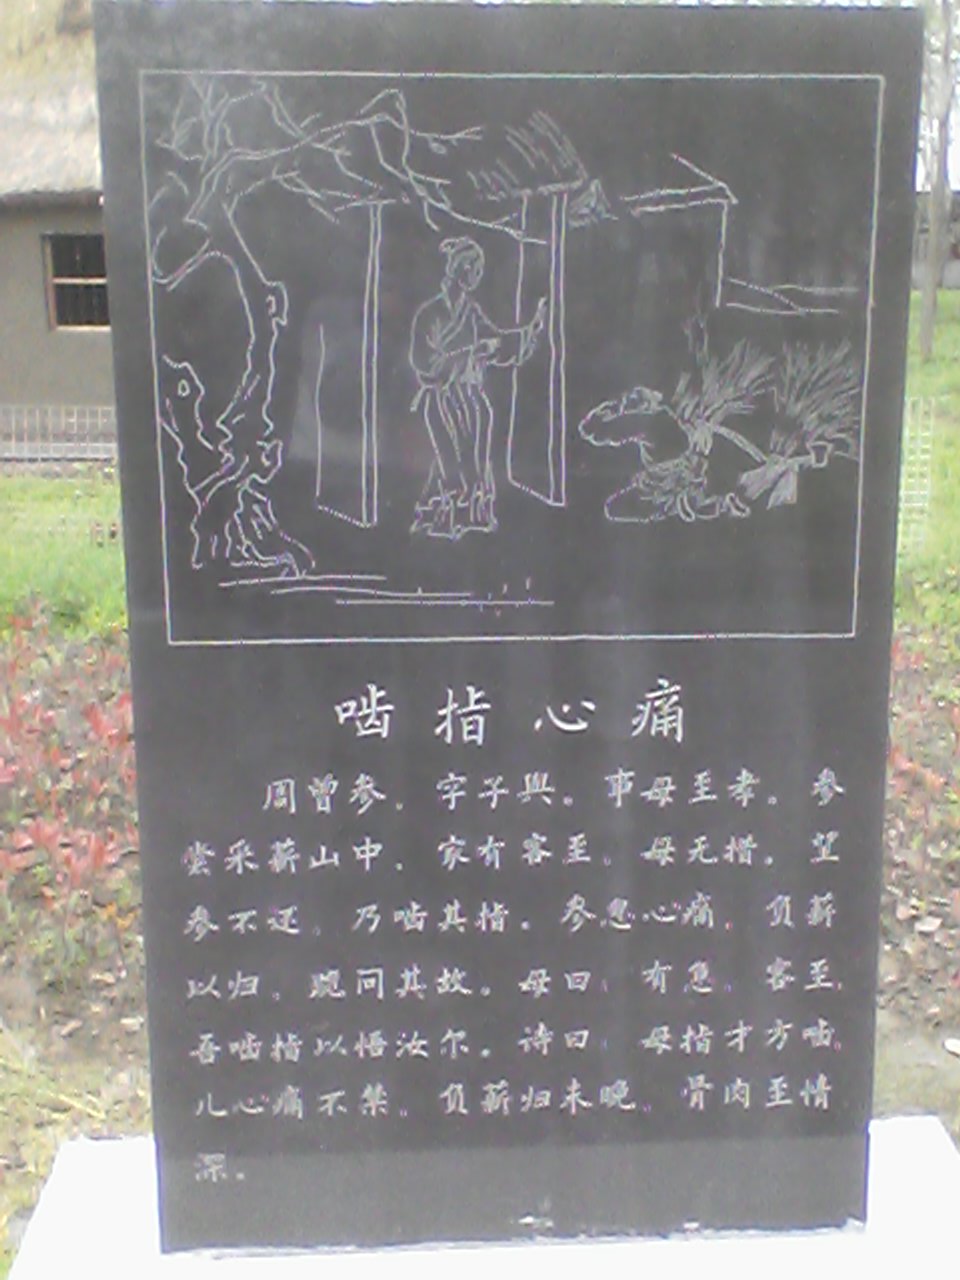 啮指心痛
周曾参。字子舆。事母至孝。参
尝采薪山中。家有客至。母无措。望
参不还。乃啮其指。参忽心痛。负薪
以归。跪问其故。母曰：有急。客至，
吾啮指以悟汝尔。诗曰：母指才方啮，
儿心痛不禁。负薪归未晚。骨肉至情
深。